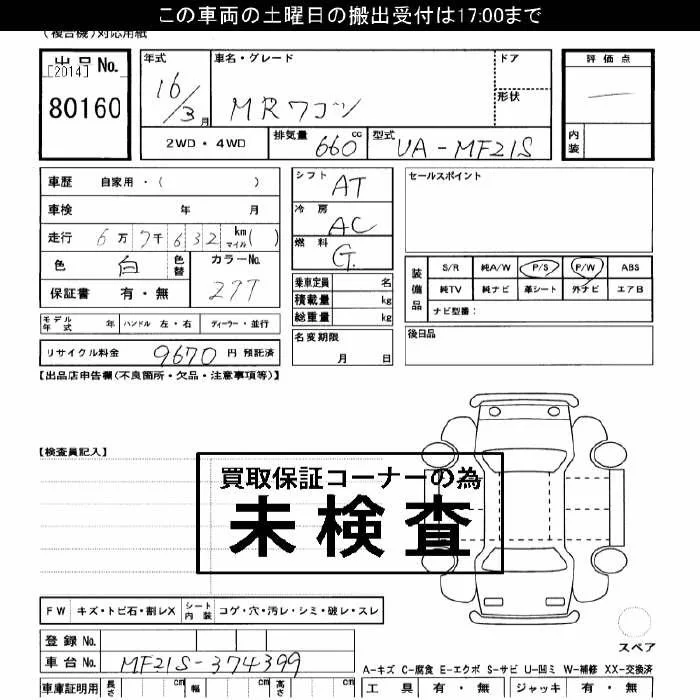 この車両の土曜日の搬出受付は17:00まで
(複合機)対応用紙
出品No. 年式 車名・グレード ドア 評価点
[2014]
80160 16/3月 MRワゴン 形状 —
2WD・4WD 排気量 660cc 型式 UA-MF21S 内装
車歴 自家用・( ) シフト AT セールスポイント
車検 年 月 冷房 AC
走行 6万7千632 km マイル( ) 燃料 G.
色 白 色替 カラーNo. 27T 装備品 S/R 純A/W P/S P/W ABS
保証書 有・無 乗車定員 名 純TV 純ナビ 革シート 外ナビ エアB
積載量 kg ナビ型番:
モデル年式 年 ハンドル 左・右 ディーラー・並行 総重量 kg
リサイクル料金 9670円 預託済 名変期限 月 日 後日品
【出品店申告欄(不良箇所・欠品・注意事項等)】
【検査員記入】
買取保証コーナーの為
未検査
FW キズ・トビ石・割レX シート内装 コゲ・穴・汚レ・シミ・破レ・スレ
登録No. スペア
車台No. MF21S-374399
A-キズ C-腐食 E-エクボ S-サビ U-凹ミ W-補修 XX-交換済
車庫証明用 長さ cm 幅 cm 高さ cm 工具 有・無 ジャッキ 有・無